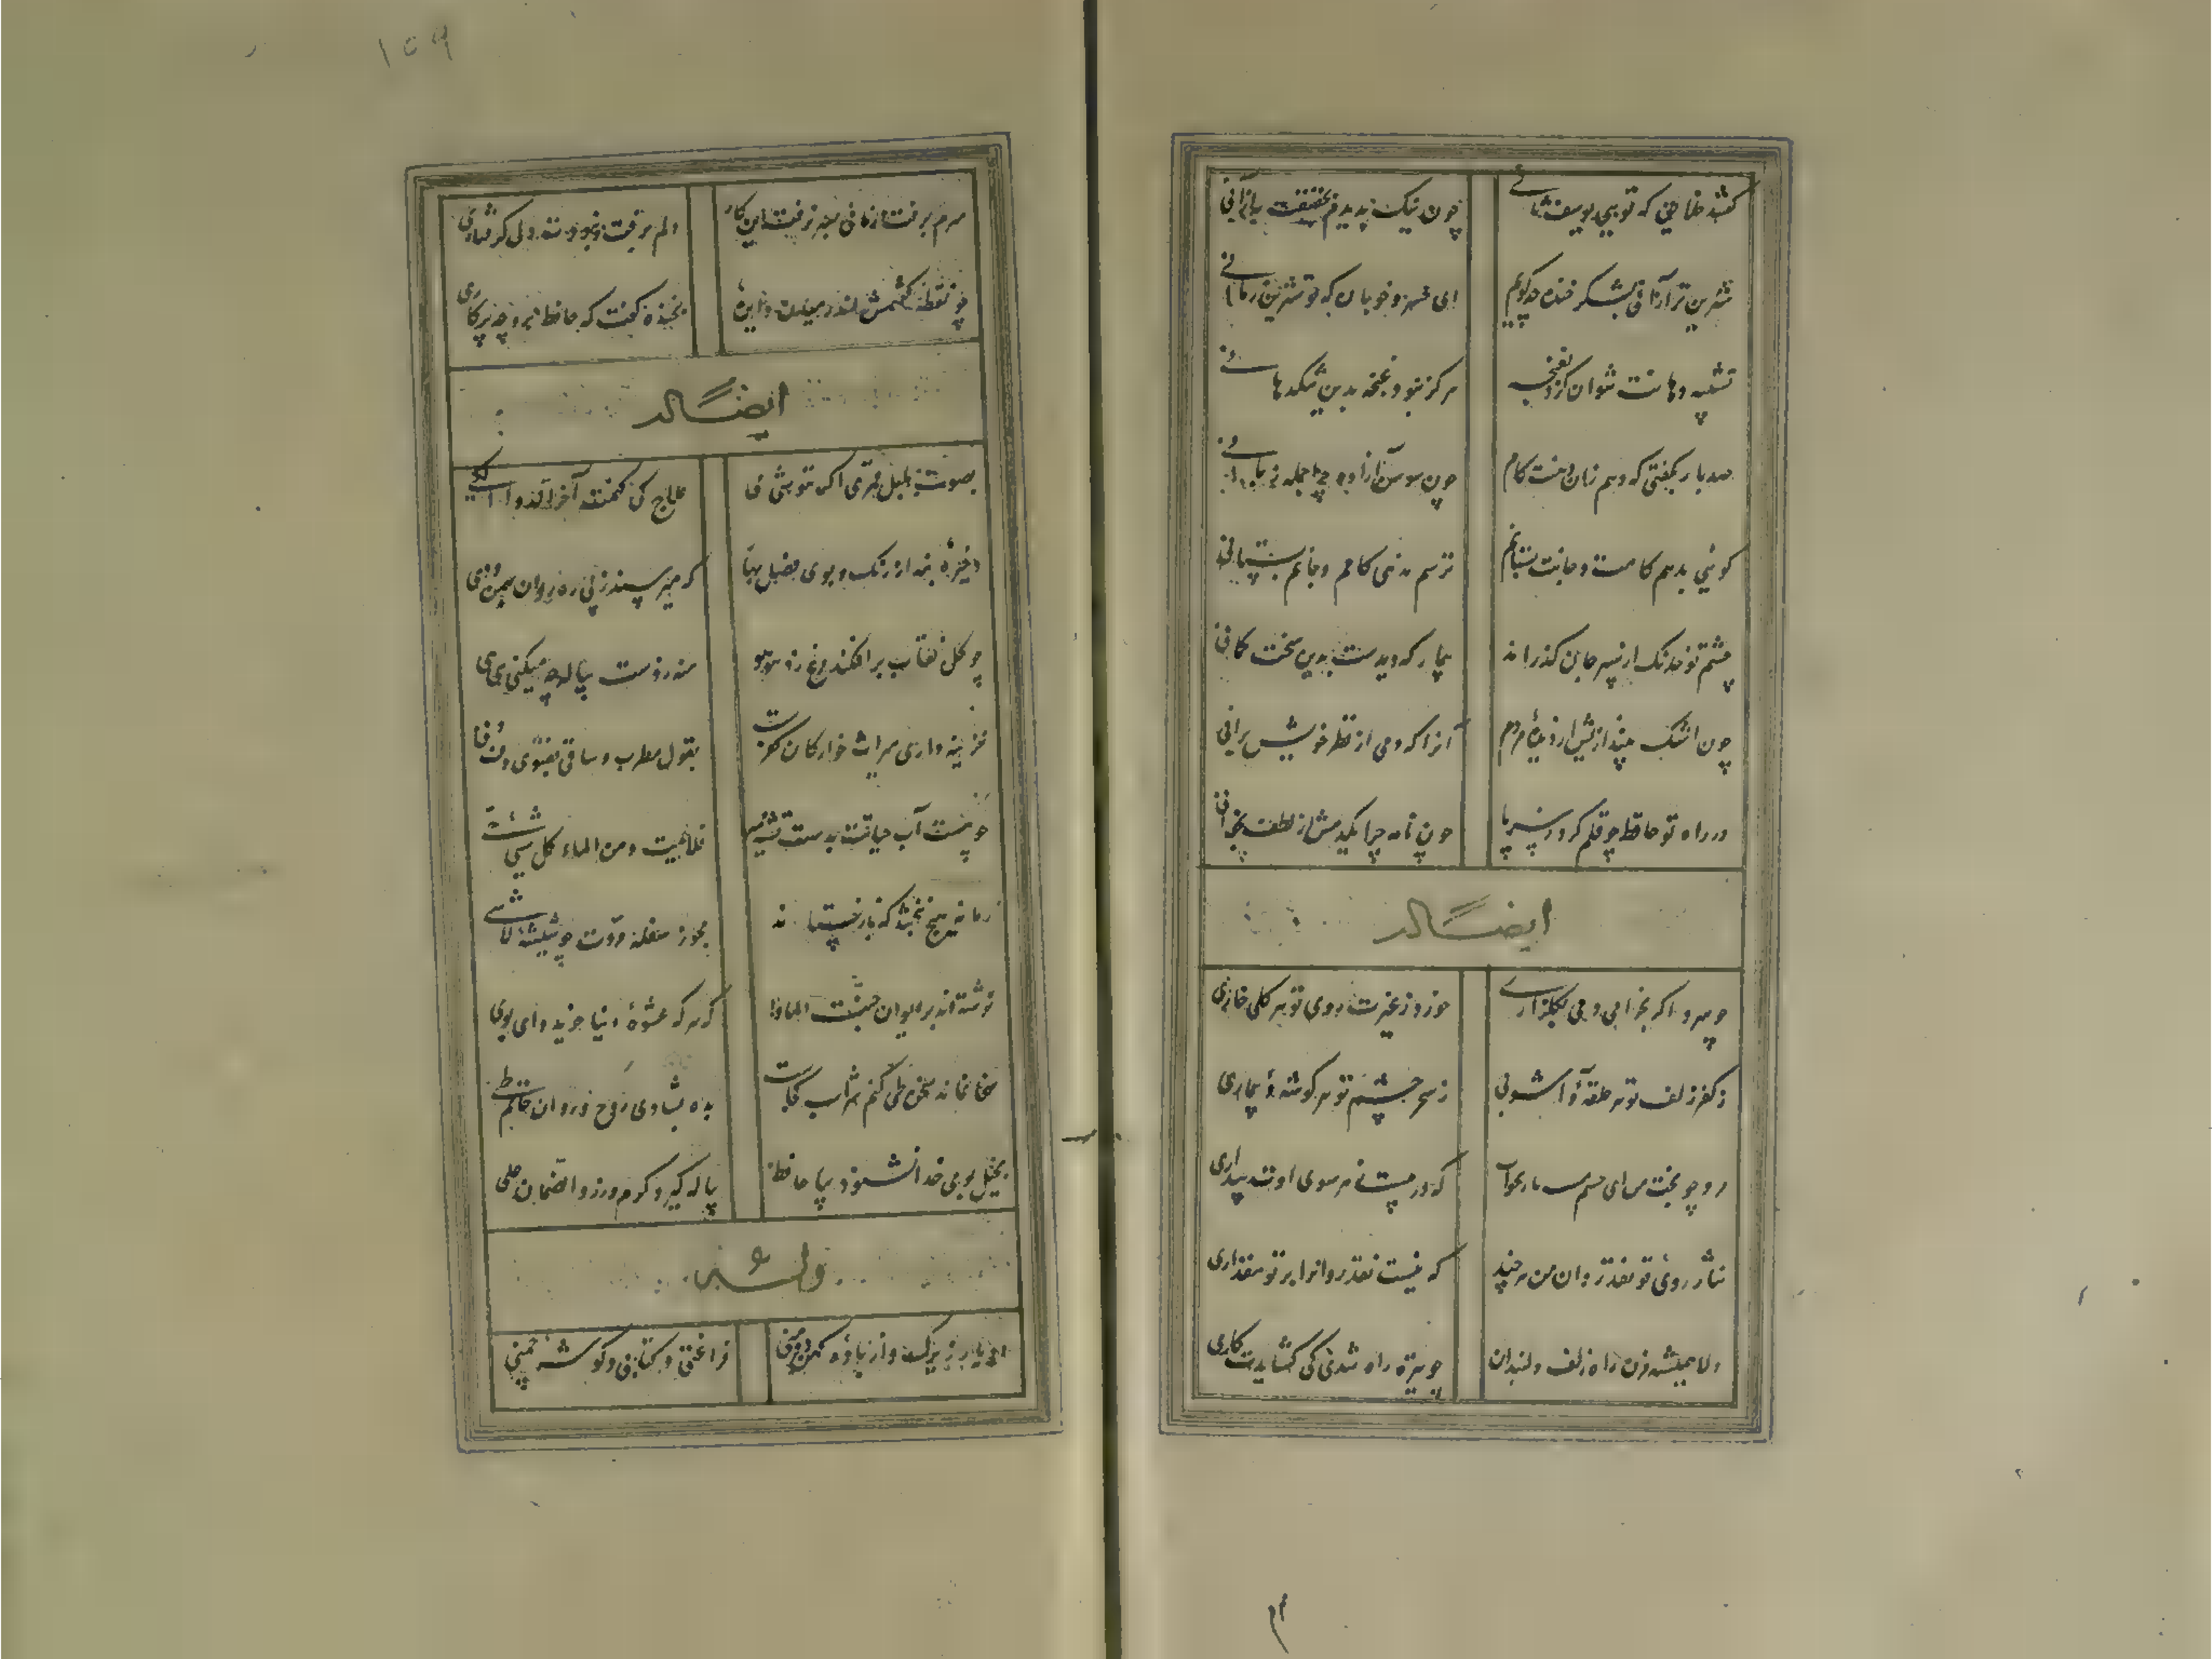 گفتند خلایق که تویی یوسف ثانی
چون نیک بدیدم بحقیقت به ازآنی
شیرین تر ازآنی بشکر خنده که گویم
ای خسرو خوبان که تو شیرین زمانی
تشبیه دهانت نتوان کرد بغنچه
هرگز نبود غنچه بدین تنگ دهانی
صد بار بگفتی که دهم زان دهنت کام
چون سوسن آزاده چرا جمله زبانی
گوئی بدهم کامت و جانت بستانم
ترسم ندهی کامم و جانم بستانی
چشم تو خدنگ از سپر جان گذراند
بیمار که دیدست بدین سخت کمانی
چون اشک بیندازیش از دیدهٔ مردم
آنرا که دمی از نظر خویش برانی
در راه تو حافظ چو قلم کرد ز سر پا
چون نامه چرا یکدمش از لطف نخوانی
ایضاً له
چو سرو اگر بخرامی دمی بگلزاری
خورد ز غیرت روی تو هر گلی خاری
ز کفر زلف تو هر حلقهٔ و آشوبی
ز سحر چشم تو هر گوشهٔ و بیماری
مرو چو بخت من ای چشم مست یار بخواب
که در پیست ز هر سوی اوت بیداری
نثار روی تو نقد روان من هر چند
که نیست نقد روانرا بر تو مقداری
دلا همیشه مزن راه زلف دلبندان
چو تیره راه شدی کی گشایدت کاری
۱۵۹
سرم برفت و زمانی بسر نرفت این کار
دلم گرفت و نبودت ولی گرفتاری
چو نقطه گفتمش اندر میان دایره
بخنده گفت که حافظ برو چه پرگاری
ایضاً له
بصوت بلبل و قمری اگر ننوشی می
علاج کی کنمت آخر الدواء الکی
ذخیره بنه از رنگ و بوی فصل بهار
که میرسند ز پی رهزنان بهمن و دی
چو گل نقاب برافکند و مرغ زد هوهو
منه ز دست پیاله چه میکنی هی هی
خزینه داری میراث خوارگان کفرست
بقول مطرب و ساقی بفتوی دف و نی
چو هست آب حیاتت بدست تشنه ممیر
فلا تمت و من الماء کل شیء حی
زمانه هیچ نبخشد که باز نستاند
مجو ز سفله مروت که شیئه لا شی
نوشته اند بر ایوان جنت الماوا
که هر که عشوهٔ دنیا خرید وای بوی
سخا نماند سخن طی کنم شراب کجاست
بده بشادی روح و روان حاتم طی
بخیل بوی خدا نشنود بیا حافظ
پیاله گیر و کرم ورز و الضمان علی
دو یار زیرک و از بادهٔ کهن دو منی
فراغتی و کتابی و گوشهٔ چمنی